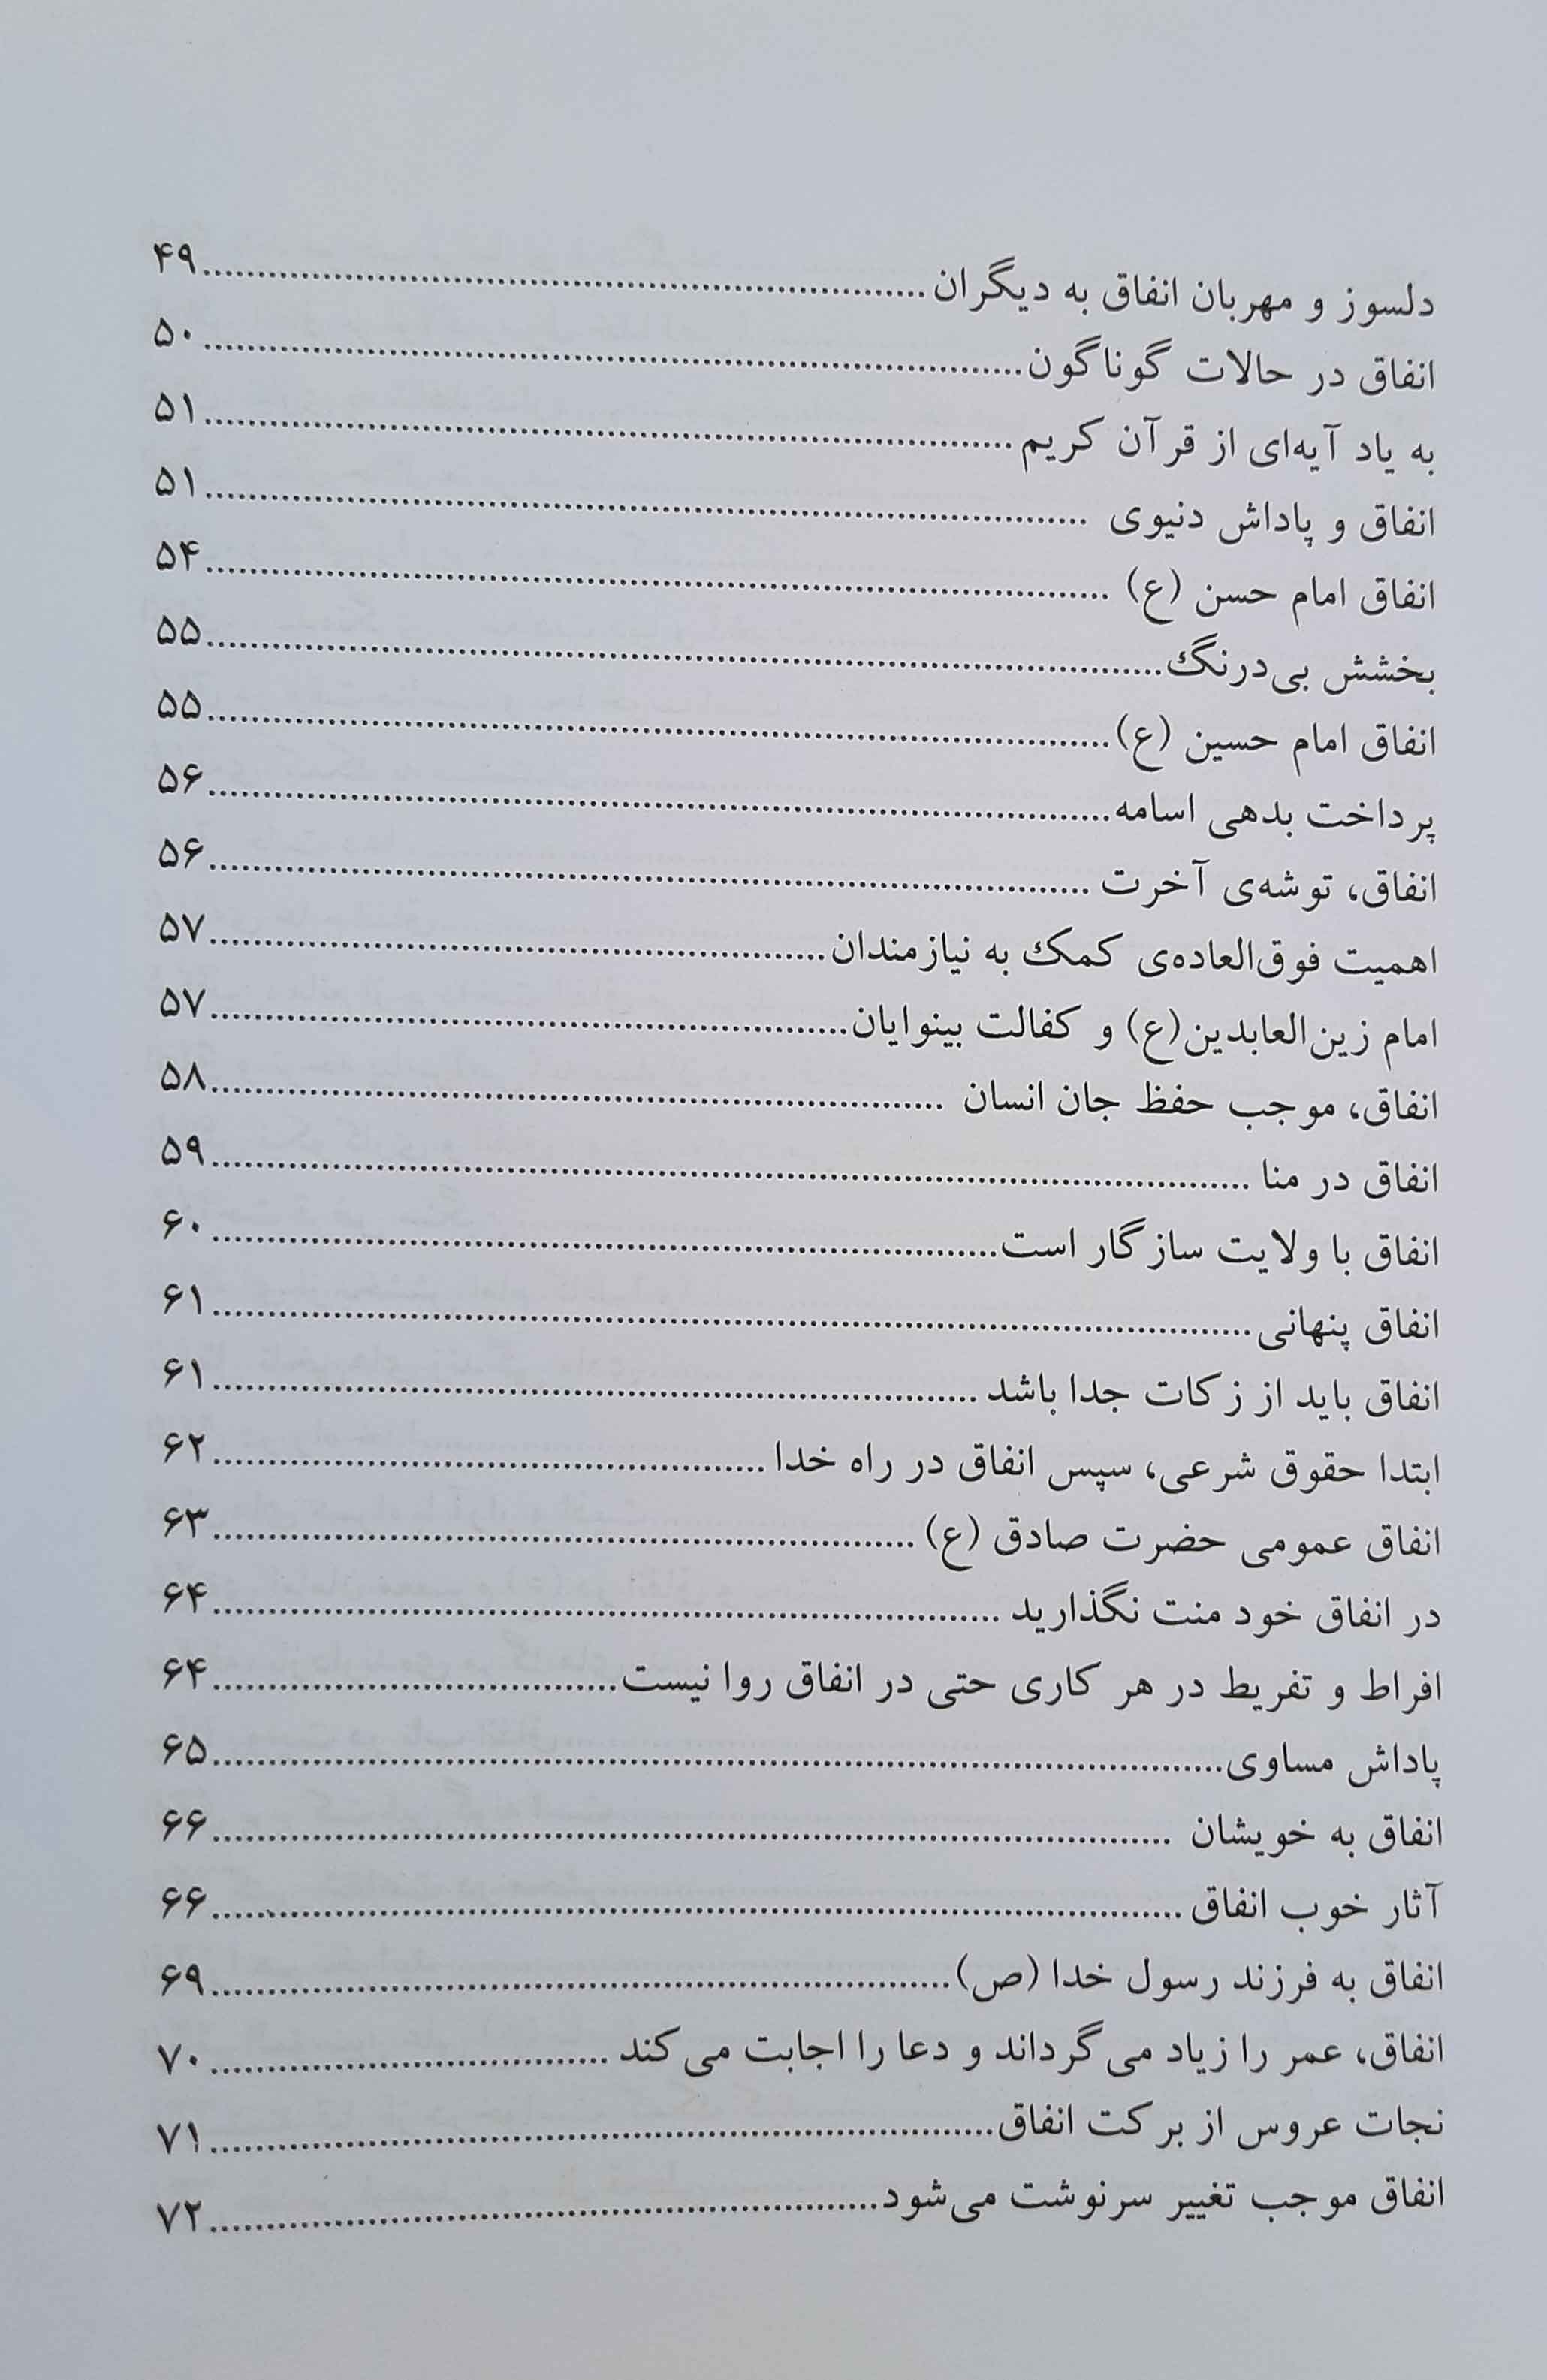 دلسوز و مهربان انفاق به دیگران ........ ۴۹
انفاق در حالات گوناگون ........ ۵۰
به یاد آیه‌ای از قرآن کریم ........ ۵۱
انفاق و پاداش دنیوی ........ ۵۱
انفاق امام حسن (ع) ........ ۵۴
بخشش بی‌درنگ ........ ۵۵
انفاق امام حسین (ع) ........ ۵۵
پرداخت بدهی اسامه ........ ۵۶
انفاق، توشه‌ی آخرت ........ ۵۶
اهمیت فوق‌العاده‌ی کمک به نیازمندان ........ ۵۷
امام زین‌العابدین(ع) و کفالت بینوایان ........ ۵۷
انفاق، موجب حفظ جان انسان ........ ۵۸
انفاق در منا ........ ۵۹
انفاق با ولایت سازگار است ........ ۶۰
انفاق پنهانی ........ ۶۱
انفاق باید از زکات جدا باشد ........ ۶۱
ابتدا حقوق شرعی، سپس انفاق در راه خدا ........ ۶۲
انفاق عمومی حضرت صادق (ع) ........ ۶۳
در انفاق خود منت نگذارید ........ ۶۴
افراط و تفریط در هر کاری حتی در انفاق روا نیست ........ ۶۴
پاداش مساوی ........ ۶۵
انفاق به خویشان ........ ۶۶
آثار خوب انفاق ........ ۶۶
انفاق به فرزند رسول خدا (ص) ........ ۶۹
انفاق، عمر را زیاد می‌گرداند و دعا را اجابت می‌کند ........ ۷۰
نجات عروس از برکت انفاق ........ ۷۱
انفاق موجب تغییر سرنوشت می‌شود ........ ۷۲